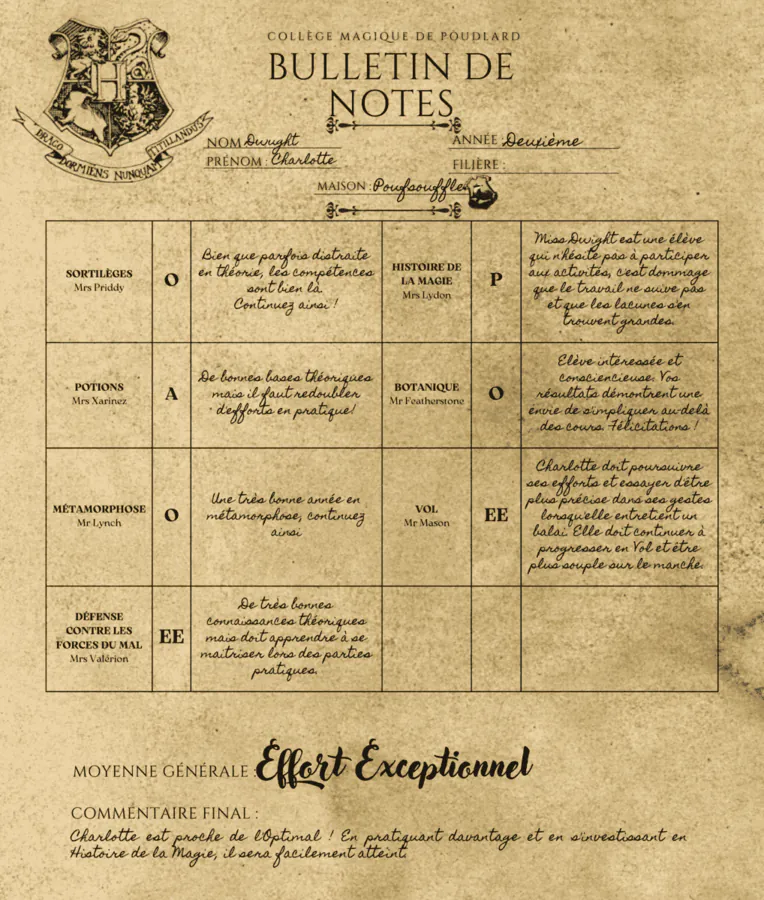 COLLÈGE MAGIQUE DE POUDLARD
BULLETIN DE
NOTES
DRACO DORMIENS NUNQUAM TITILLANDUS
NOM Dwight
ANNÉE : Deuxième
PRÉNOM : Charlotte
FILIÈRE :
MAISON : Poufsouffle
SORTILÈGES
Mrs Priddy
O
Bien que parfois distraite
en théorie, les compétences
sont bien là.
Continuez ainsi !
HISTOIRE DE
LA MAGIE
Mrs Lydon
P
Miss Dwight est une élève
qui n'hésite pas à participer
aux activités, c'est dommage
que le travail ne suive pas
et que les lacunes s'en
trouvent grandes.
POTIONS
Mrs Xarinez
A
De bonnes bases théoriques
mais il faut redoubler
d'efforts en pratique!
BOTANIQUE
Mr Featherstone
O
Elève intéressée et
consciencieuse. Vos
résultats démontrent une
envie de s'impliquer au-delà
des cours. Félicitations !
MÉTAMORPHOSE
Mr Lynch
O
Une très bonne année en
métamorphose, continuez
ainsi
VOL
Mr Mason
EE
Charlotte doit poursuivre
ses efforts et essayer d'être
plus précise dans ses gestes
lorsqu'elle entretient un
balai. Elle doit continuer à
progresser en Vol et être
plus souple sur le manche.
DÉFENSE
CONTRE LES
FORCES DU MAL
Mrs Valérion
EE
De très bonnes
connaissances théoriques
mais doit apprendre à se
maitriser lors des parties
pratiques.
MOYENNE GÉNÉRALE : Effort Exceptionnel
COMMENTAIRE FINAL :
Charlotte est proche de l'Optimal ! En pratiquant davantage et en s'investissant en
Histoire de la Magie, il sera facilement atteint.